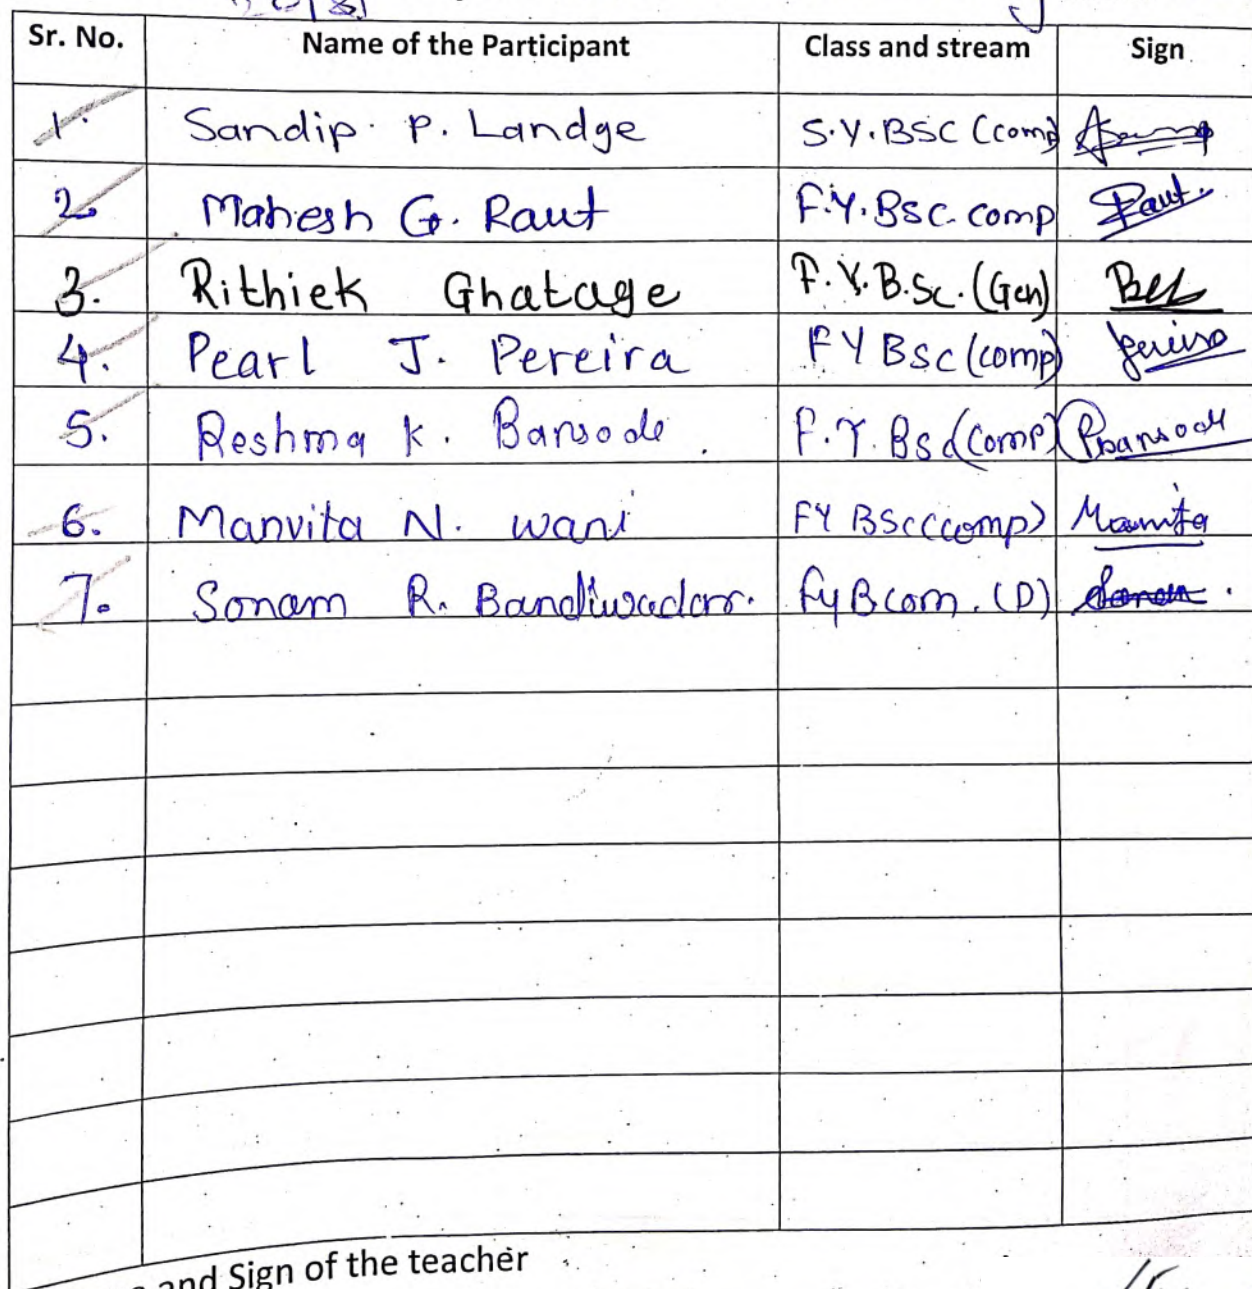 Sr. No. Name of the Participant Class and stream Sign
1. Sandip. P. Landge S.Y.BSC (comp)
2. Mahesh G. Raut F.Y.BSC. comp Raut.
3. Rithiek Ghatage F.Y.B.Sc. (Gen)
4. Pearl J. Pereira FY BSc (comp)
5. Reshma K. Bansode F.Y. BSc (comp) Rbansode
6. Manvita N. wani FY BSc (comp) Manvita
7. Sonam R. Bandiwadar. FyBcom. (D) Sonam.
and Sign of the teacher